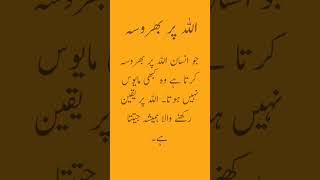 اللہ پر بھروسہ
جو انسان اللہ پر بھروسہ
کرتا ہے وہ کبھی مایوس
نہیں ہوتا۔ اللہ پر یقین
رکھنے والا ہمیشہ جیتتا
ہے۔